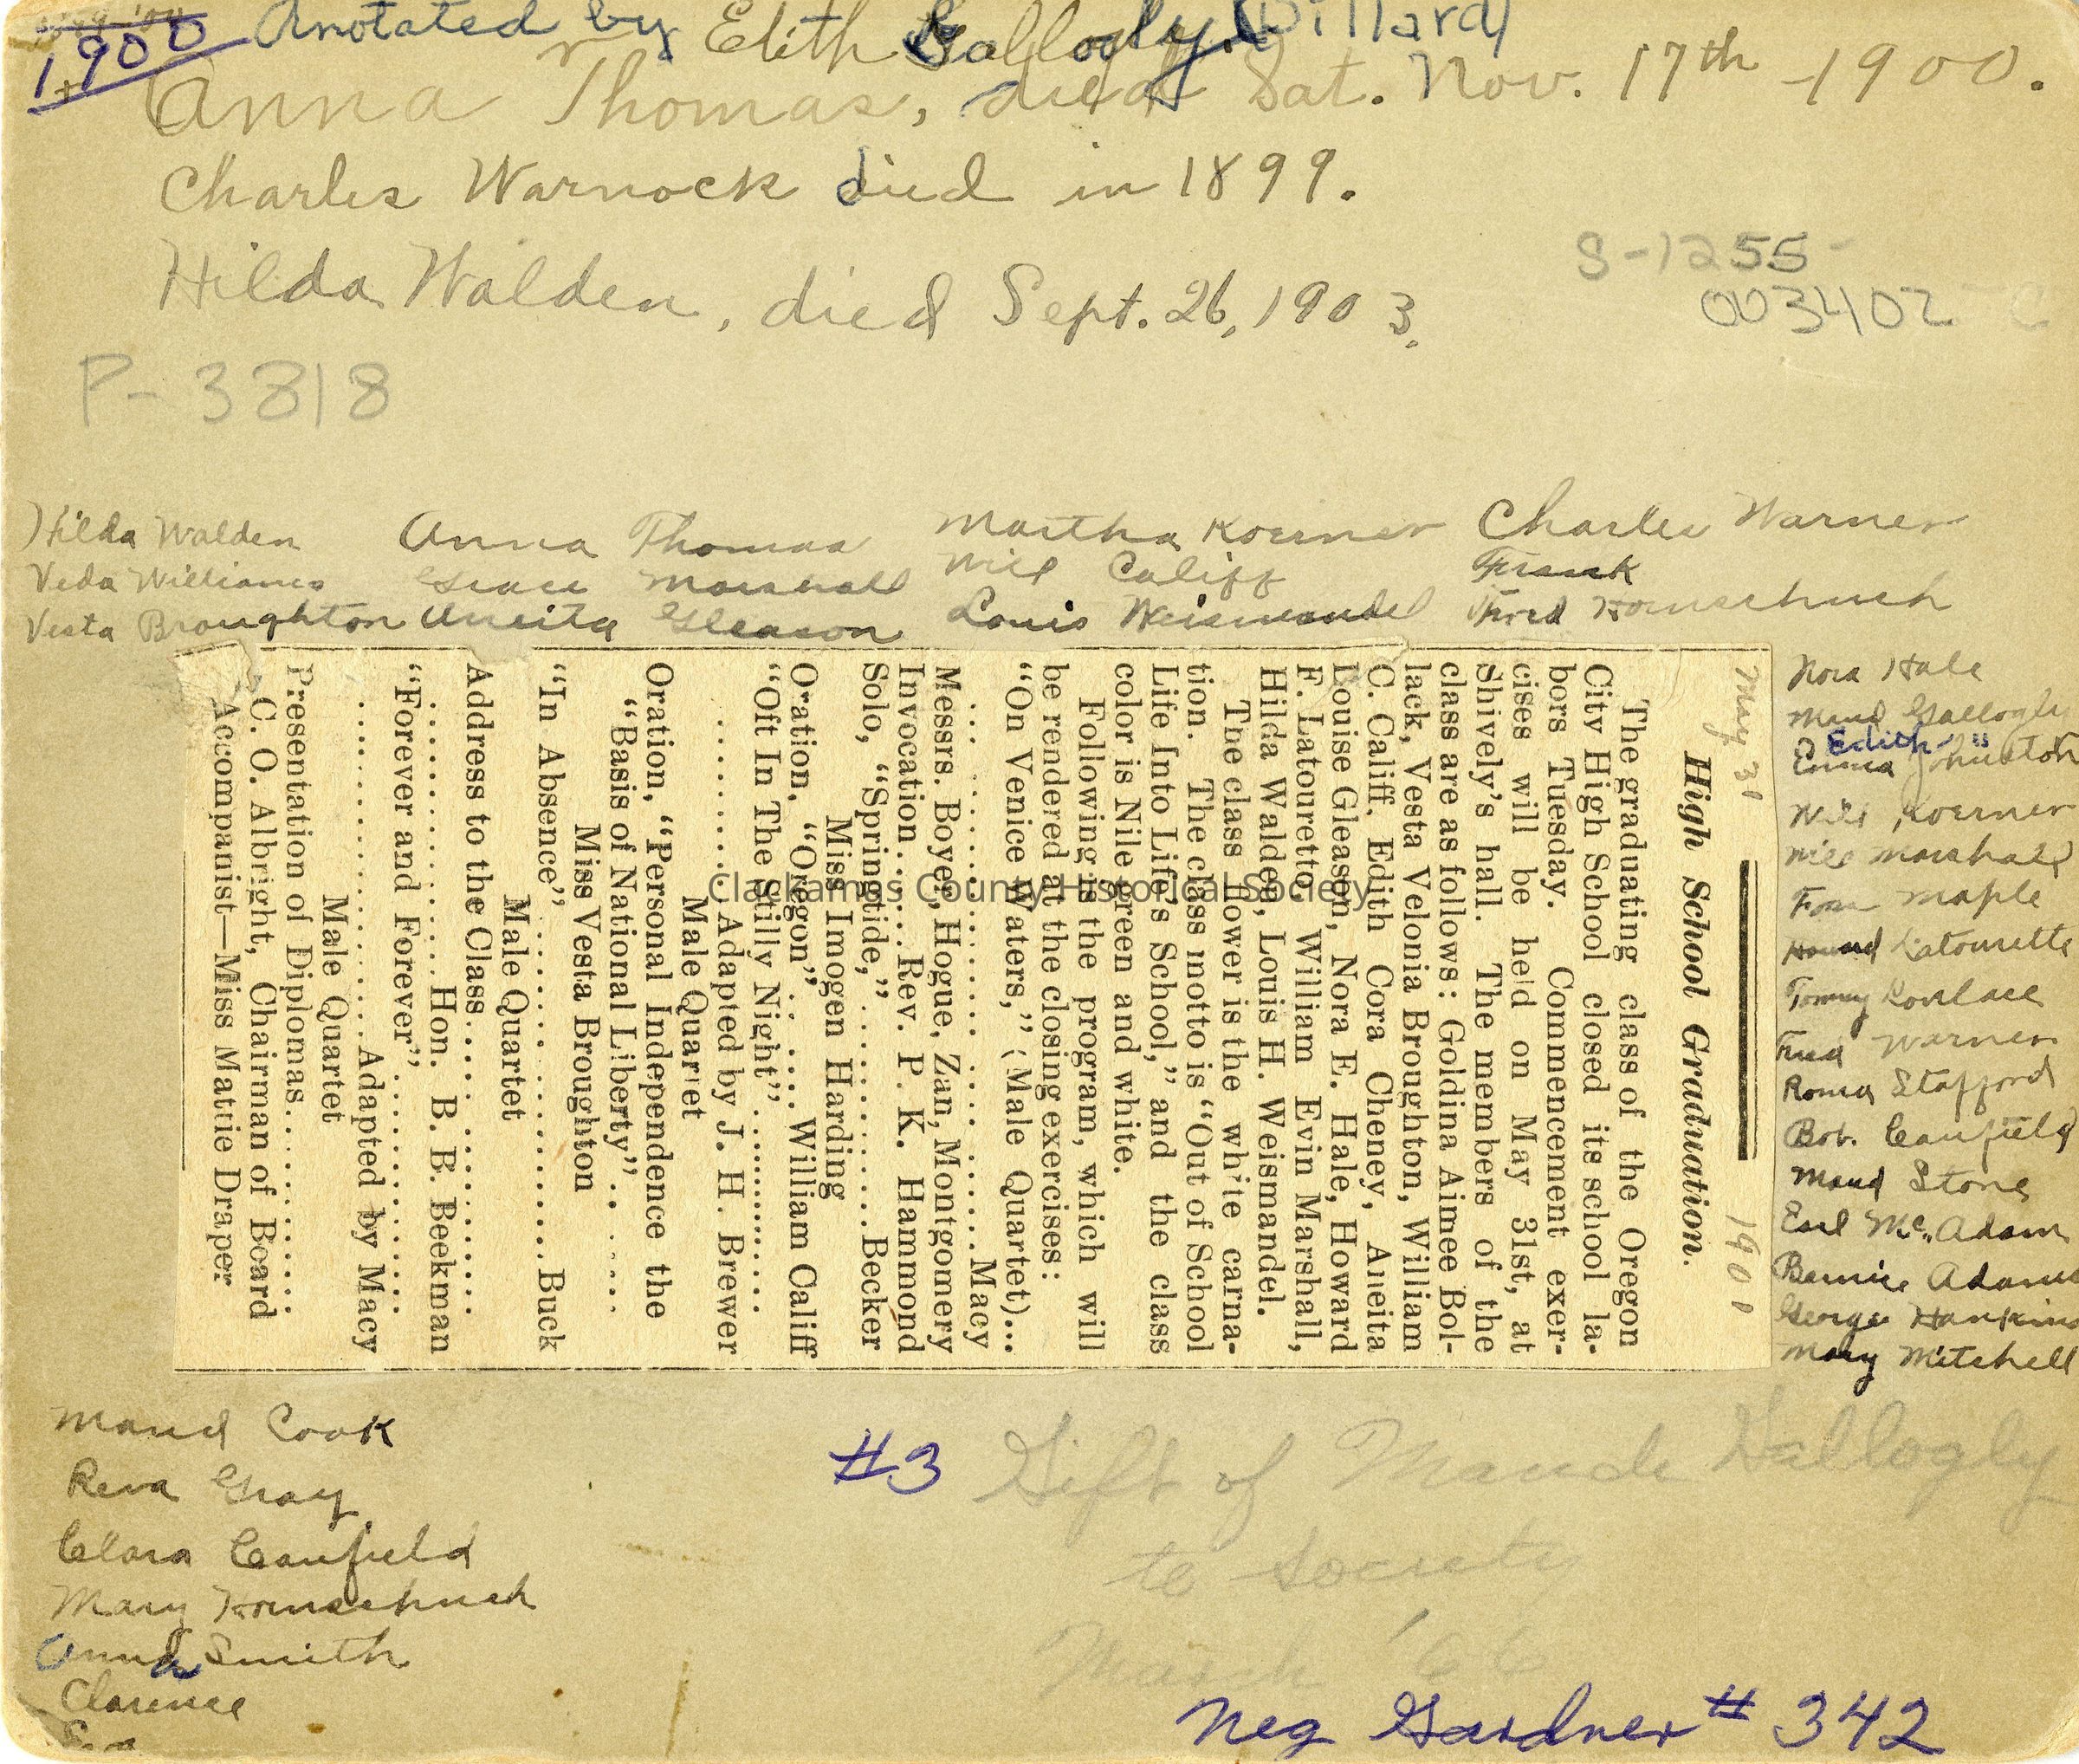 1900 Anotated by Edith Gallogly (Dillard)
Anna Thomas, died Sat. Nov. 17th -1900.
Charles Warnock died in 1899.
Hilda Walden, died Sept. 26, 1903.
S-1255-
003402
P-3818
Hilda Walden Anna Thomas Martha Koerner Charles Warner
Veda Williams Grace Marshall Will Califf Frank
Vesta Broughton Aneita Gleason Louis Weismandel Fred Hornschuch
May 31 1901
High School Graduation.
The graduating class of the Oregon
City High School closed its school la-
bors Tuesday. Commencement exer-
cises will be held on May 31st, at
Shively's hall. The members of the
class are as follows: Goldina Aimee Bol-
lack, Vesta Velonia Broughton, William
C. Califf, Edith Cora Cheney, Aneita
Louise Gleason, Nora E. Hale, Howard
F. Latourette, William Evin Marshall,
Hilda Walden, Louis H. Weismandel.
The class flower is the white carna-
tion. The class motto is "Out of School
Life Into Life's School," and the class
color is Nile green and white.
Following is the program, which will
be rendered at the closing exercises:
"On Venice Waters," (Male Quartet)...
.......................Macy
Messrs. Boyer, Hogue, Zan, Montgomery
Invocation........Rev. P. K. Hammond
Solo, "Springtide,"..............Becker
Miss Imogen Harding
Oration, "Oregon"......William Califf
"Oft In The Stilly Night"..............
............Adapted by J. H. Brewer
Male Quartet
Oration, "Personal Independence the
"Basis of National Liberty"......
Miss Vesta Broughton
"In Absence"....................Buck
Male Quartet
Address to the Class..................
................Hon. B. B. Beekman
"Forever and Forever"................
................Adapted by Macy
Male Quartet
Presentation of Diplomas............
C. O. Albright, Chairman of Board
Accompanist—Miss Mattie Draper
Nora Hale
Maud Gallogly
Edith "
Emma Johnston
Will Koerner
Will Marshall
Maple
Howard Latourette
Tommy Lovelace
Fred Warner
Roma Stafford
Bob. Caufield
Maud Stone
Earl Mc. Adam
Bernice Adams
George Hankins
Mary Mitchell
Clackamas County Historical Society
Maud Cook
Reva Gray
Clara Caufield
Mary Hornschuch
Anna Smith
Clarence
#3 Gift of Maude Gallogly
to Society
March '66
Neg Gardner # 342